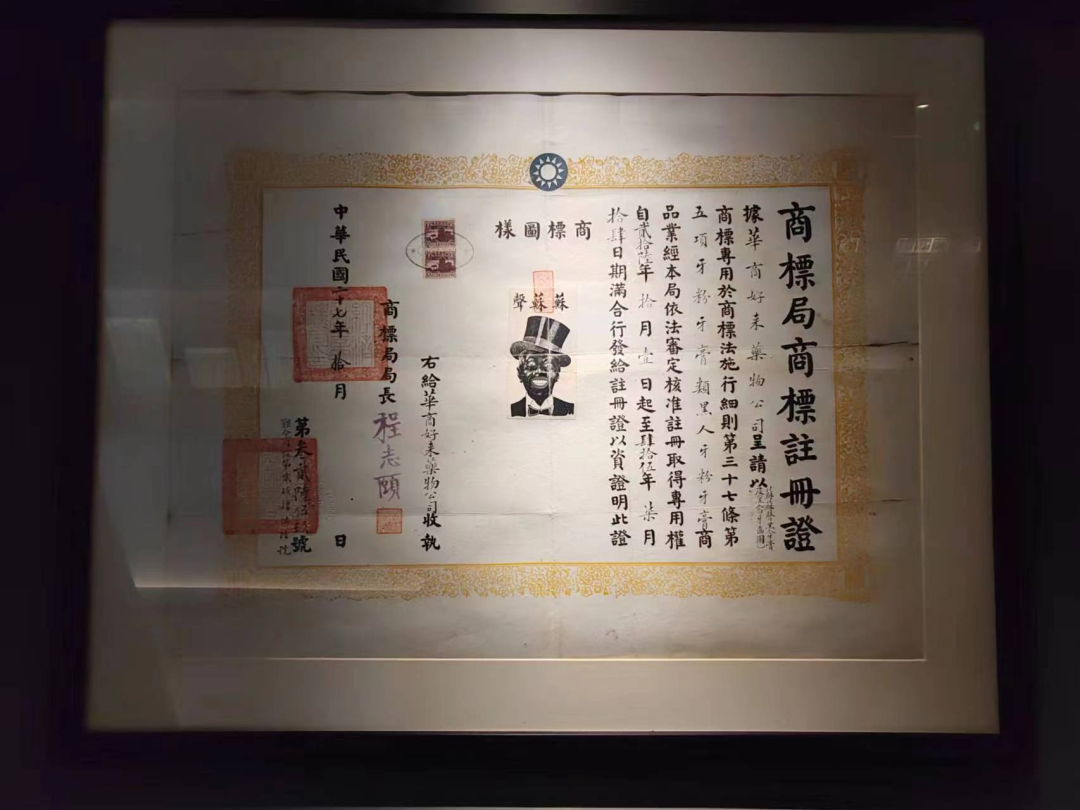 商標局商標註冊證
據華商好來藥物公司呈請以
商標專用於商標法施行細則第三十七條第
五項牙粉牙膏類黑人牙粉牙膏商
品業經本局依法審定核准註冊取得專用權
自貳拾陸年拾月壹日起至肆拾伍年柒月
拾肆日期滿合行發給註冊證以資證明此證
商標圖樣
蘇蘇聲
右給華商好來藥物公司收執
商標局局長 程志頤
中華民國二十七年拾月 日
第叁貳陸伍玖號